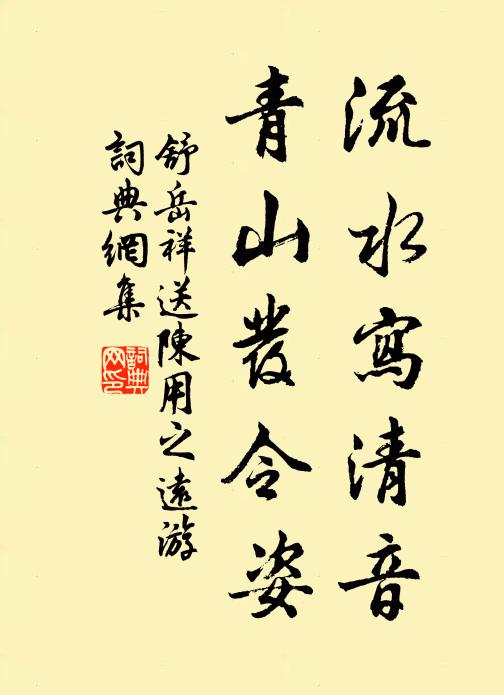 流水寫清音
青山發令姿
舒岳祥送陳用之遠游
詞典網集
詞典网印